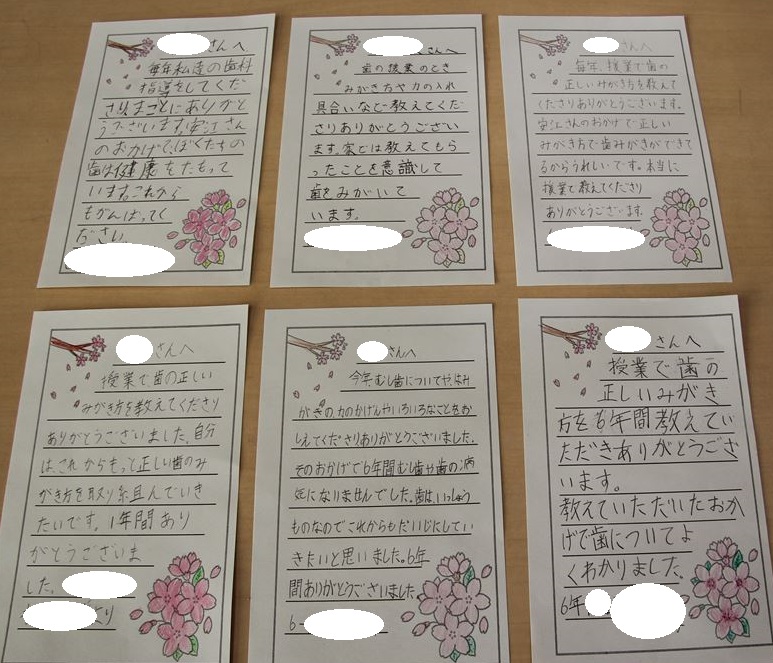 さんへ
毎年私達の歯科
指導をしてくだ
さり、まことにありがと
うございます。安江さん
のおかげで、ぼくたちの
歯は健康をたもって
います。これから
もがんばってく
ださい
さんへ
歯の授業のとき
みがき方や力の入れ
具合いなど教えてくだ
さりありがとうござい
ます。家では教えてもら
ったことを意識して
歯をみがいて
います。
さんへ
毎年、授業で歯の
正しいみがき方を教えて
くださりありがとうございます。
安江さんのおかげで正しい
みがき方で歯みがきができて
るからうれしいです。本当に
授業で教えてくださり
ありがとうございます。
さんへ
授業で歯の正しい
みがき方を教えてくださり
ありがとうございました。自分
は、これからもって正しい歯のみ
がき方を取り組んでいき
たいです。1年間あり
がとうございま
した。
より
さんへ
今年むし歯についてや、はみ
がきの、力のかげんやいろいろなことをお
しえてくださりありがとうございました。
そのおかげで6年間むし歯や歯の病
気になりませんでした。歯は、いっしょう
ものなのでこれからもだいじにしてい
きたいと思いました。6年
間ありがとうございました。
6-
さんへ
授業で歯の
正しいみがき
方を6年間教えてい
ただきありがとうござ
います。
教えていただいたおか
げで歯についてよ
くわかりました。
6年